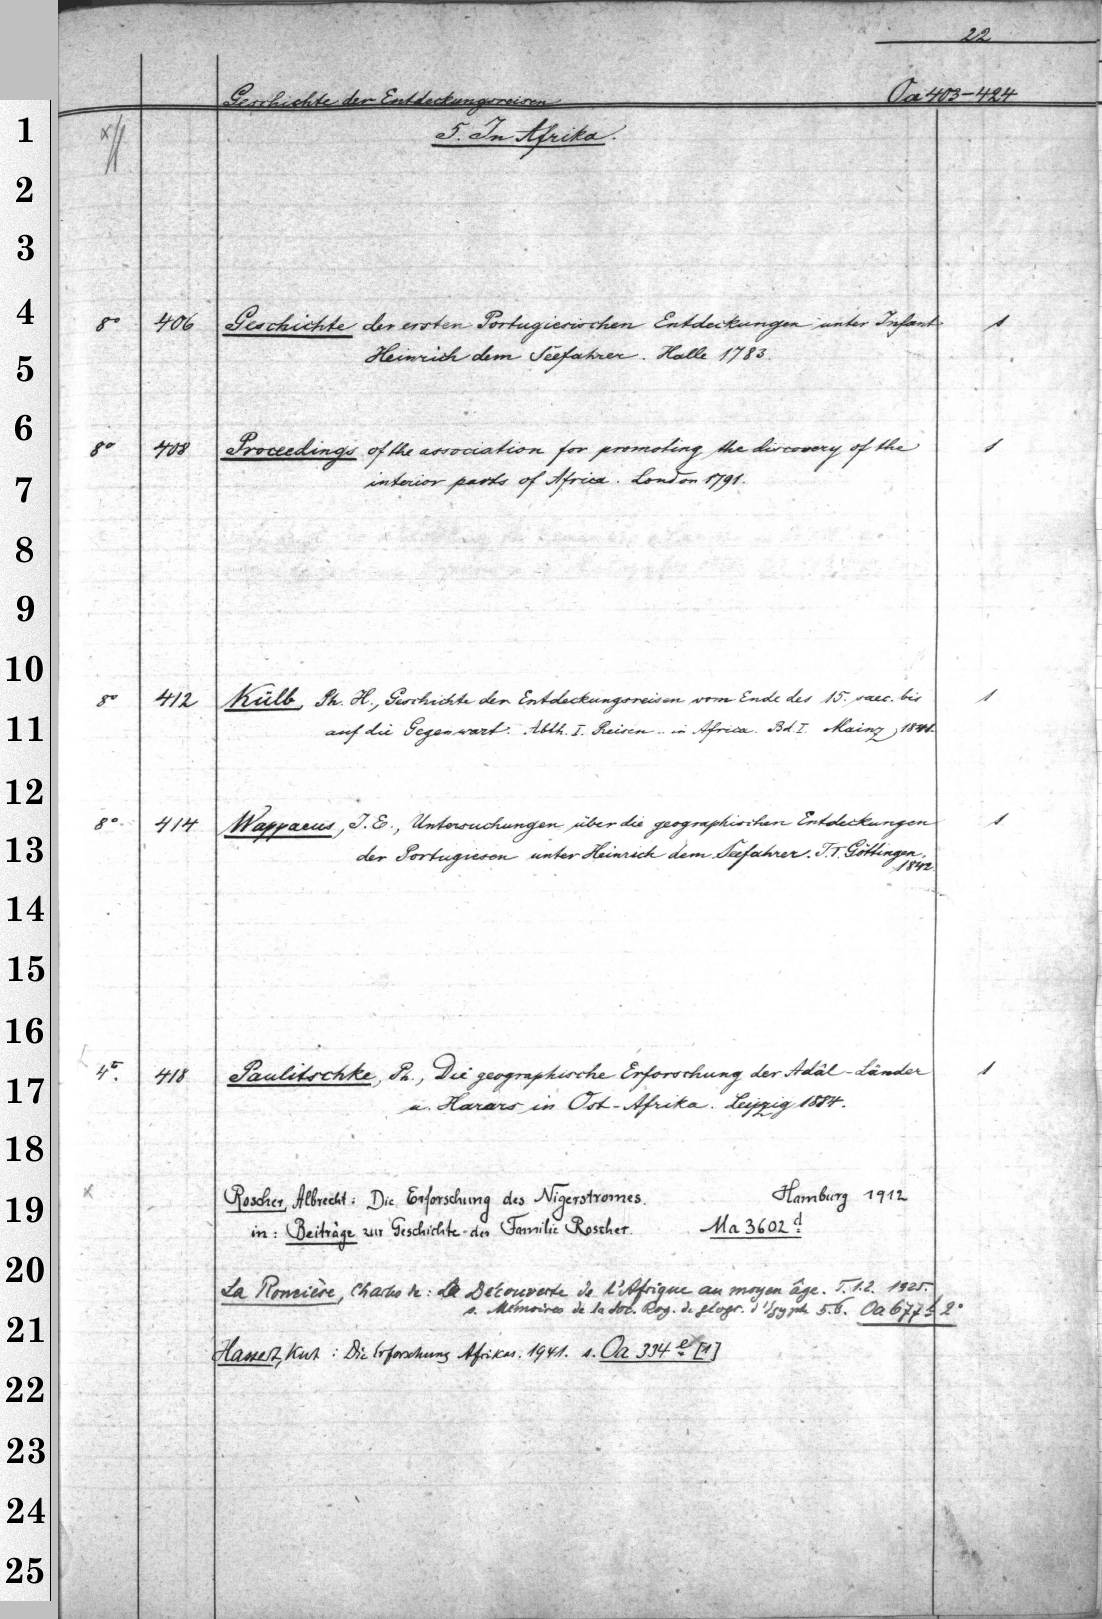 22
Geschichte der Entdeckungsreisen Oa 403-424
1 x 5. In Afrika.
2
3
4 8° 406 Geschichte der ersten Portugiesischen Entdeckungen unter Infant 1
5 Heinrich dem Seefahrer. Halle 1783.
6 8° 408 Proceedings of the association for promoting the discovery of the 1
7 interior parts of Africa. London 1791.
8
9
10 8° 412 Külb, Ph. H., Geschichte der Entdeckungsreisen vom Ende des 15. saec. bis 1
11 auf die Gegenwart. Abth. I. Reisen .. in Africa. Bd. I. Mainz, 1841.
12
8° 414 Wappaeus, J. E., Untersuchungen über die geographischen Entdeckungen 1
13 der Portugiesen unter Heinrich dem Seefahrer. T. I. Göttingen,
1842.
14
15
16
17 4t. 418 Paulitschke, Ph., Die geographische Erforschung der Adâl-Länder 1
u. Harars in Ost-Afrika. Leipzig 1884.
18
19 x Roscher, Albrecht: Die Erforschung des Nigerstromes. Hamburg 1912
in: Beiträge zur Geschichte der Familie Roscher. Ma 3602 d
20 La Roncière, Charles de: La Découverte de l'Afrique au moyen âge. T. 1.2. 1925.
s. Mémoires de la Soc. Roy. de géogr. d'Egypte 5.6. Oa 677 2°
21 Hassert, Kurt: Die Erforschung Afrikas. 1941. s. Oa 334 e [1]
22
23
24
25